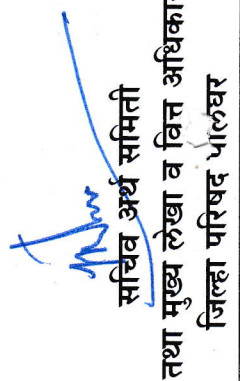 सचिव अर्थ समिती
तथा मुख्य लेखा व वित्त अधिका
जिल्हा परिषद पालघर